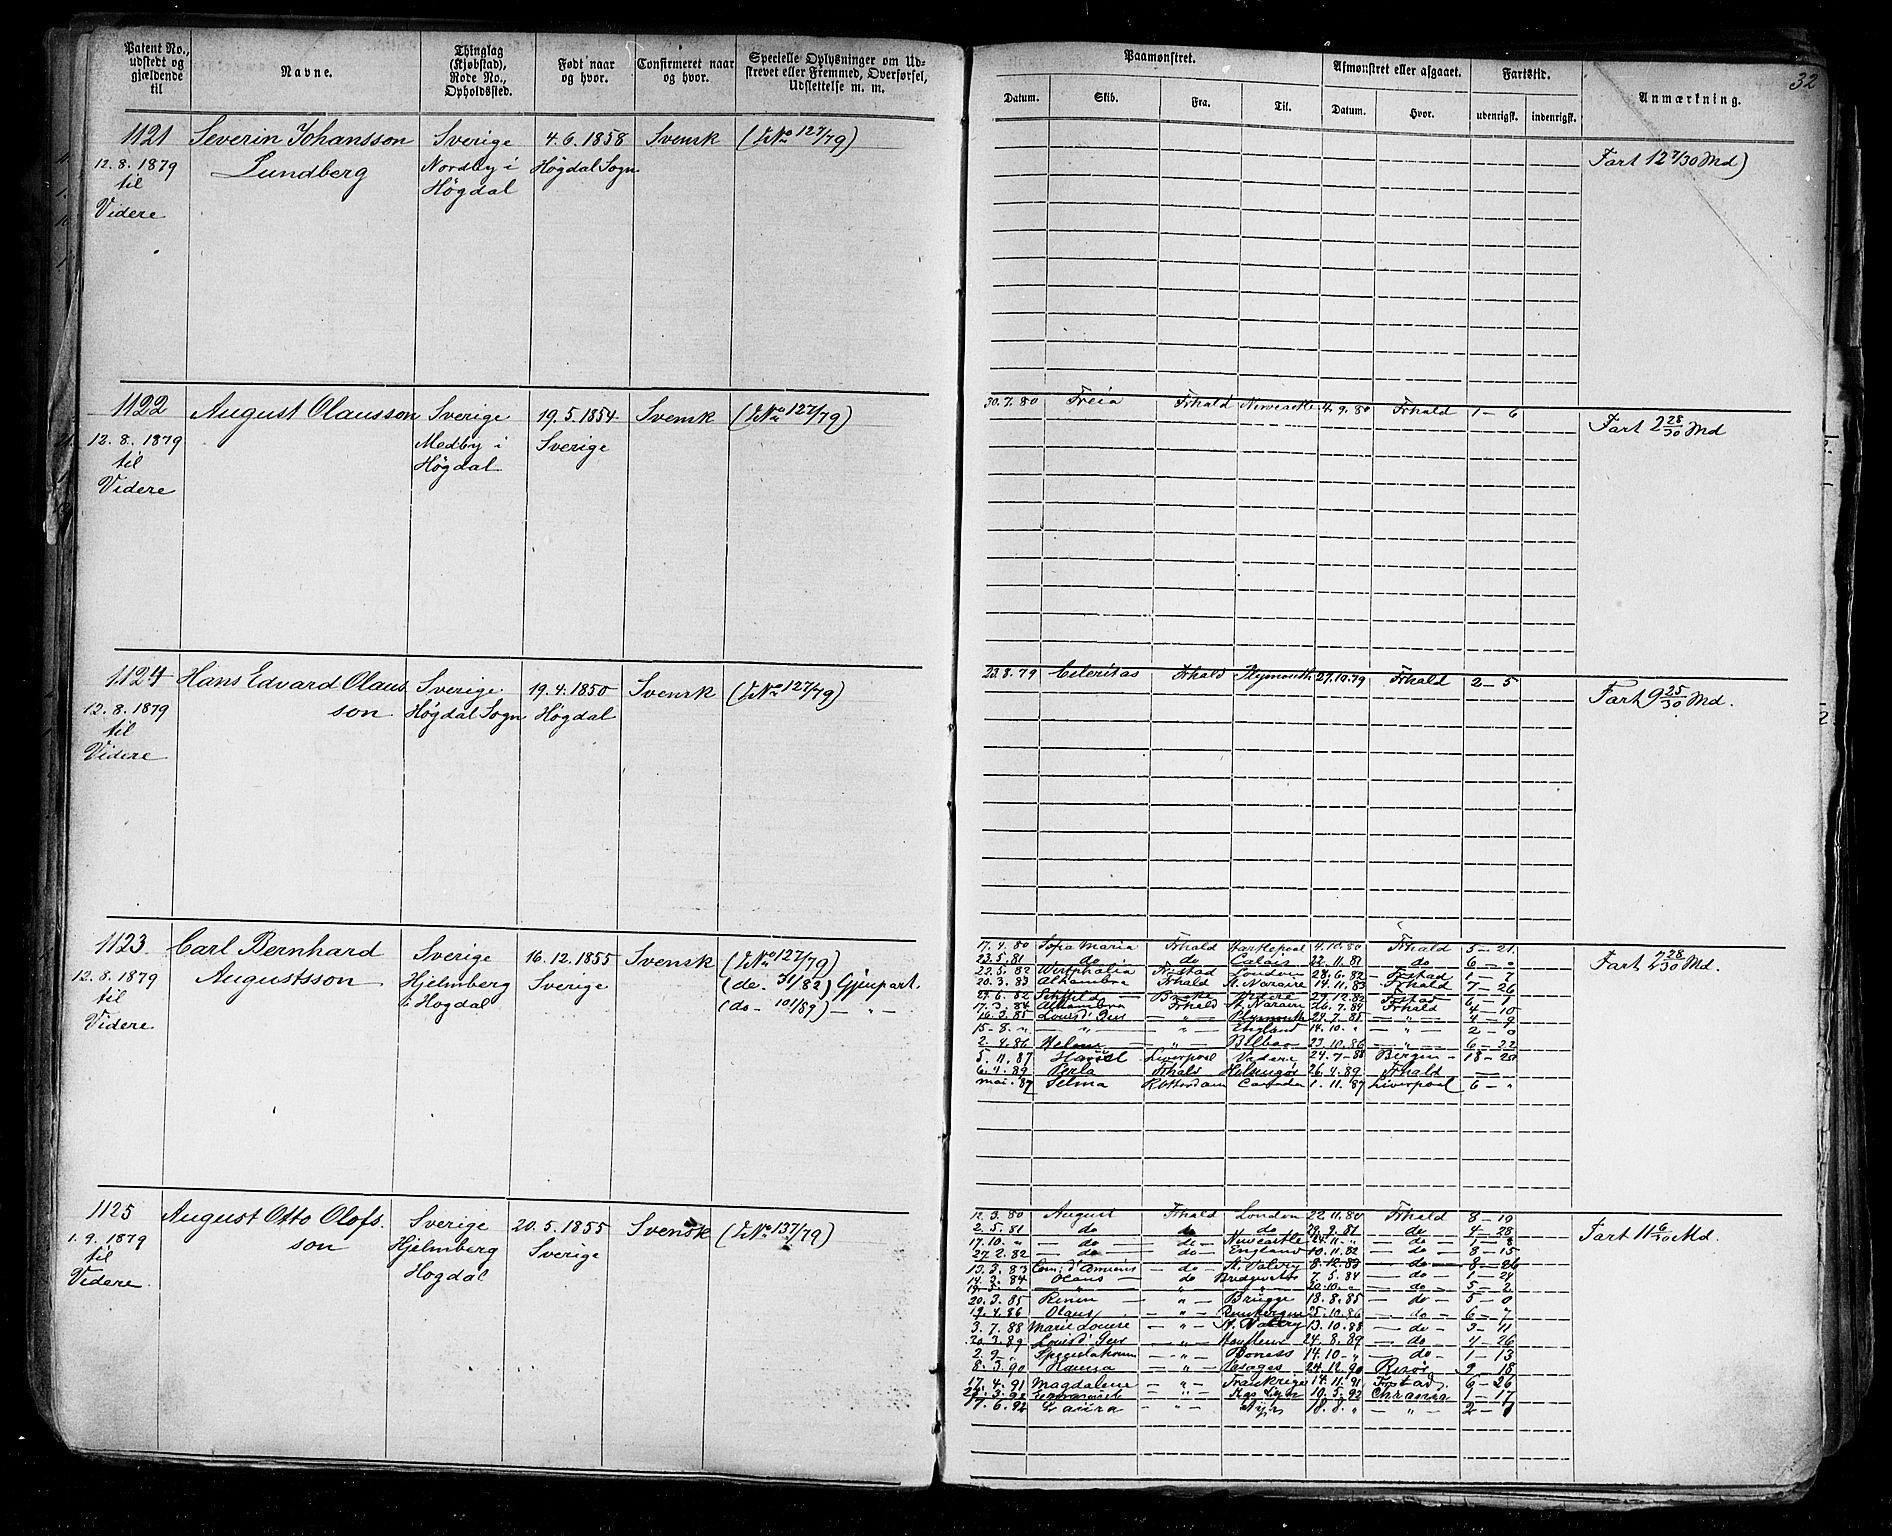 Patent No., udstedt og gjældende til
Navne.
Thinglag (Kjøbstad), Rode No., Opholdssted.
Født naar og hvor.
Confirmeret naar og hvor.
Specielle Oplysninger om Udstrevet eller Fremmed, Overførsel, Udslettelse m. m.
Paamønstret.
Afmønstret eller afgaaet.
Fartstid.
Anmærkning.
32
Datum. Skib. Fra. Til. Datum. Hvor. udenrigsk. indenrigsk.
1121 Severin Johansson Sverige 4.6.1858 Svensk (J No 127/79)
12.8.1879 Lundberg Nordby i Høgdal Sogn
til Høgdal
Videre
Fart 12 7/30 Md)
1122 August Olausson Sverige 19.5.1854 Svensk (J No 127/79)
12.8.1879 Medby i Sverige
til Høgdal
Videre
30.7.80 Freia Frhald Newcastle 4.9.80 Frhald 1-6
Fart 2 28/30 Md
1124 Hans Edvard Olaus Sverige 19.4.1850 Svensk (J No 127/79)
12.8.1879 son Høgdal Sogn Høgdal
til
Videre
23.8.79 Celeritas Frhald Plymouth 27.10.79 Frhald 2-5
Fart 9 25/30 Md.
1123 Carl Bernhard Sverige 16.12.1855 Svensk (J No 127/79)
12.8.1879 Augustsson Hjelmberg Sverige (do. 31/82) Gjenpart.
til i Hogdal (do- 101/87) - " -
Videre
17.4.80 Sofia Maria Frhald Hartlepool 4.10.80 Frhald 5-21.
23.5.81 do do Calais 22.11.81 do 6 - "
22.5.82 Westphalia Frstad London 28.6.82 - Frstad 1-7
20.3.83 Alhambra Frhald St. Nazaire 14.11.83 Frhald 7-26
27.6.82 Videre 29.12.82 Frstad 6-1
17.3.84 Alhambra Frhald St. Nazaire 26.7.84 Frhald 4-10
16.3.85 Louis d'Geer - " - Plymouth 24.7.85 - " - 4-9
15-8. " - " - " - England 14.10. " - " - 2-0
2.4.86 - " - Bilbao 23.10.86 - " - 6-22
5.11.87 Liverpool Videre 24.7-88 Bergen - 18-20
6.4.89 Perla Frhald Helsingør 26.4.89 Frhald
mai.87 Selma Rotterdam Canada 1.11.87 Liverpool 6 - "
Fart 2 28/30 Md.
1125 August Otto Olofs. Sverige 20.5.1855 Svensk (J No 137/79)
1.9.1879 son Hjelmberg Sverige
til Hogdal
Videre.
12.3.80 August Frhald London 22.11.80 Frhald 8-10
2.5.81 do do do 29.9.81 - do - 4-28
17.10. " - do - do - Newcastle 24.11. " - do - 1-8
27.2.82 - do - do - England 10.11.82 - do - 8-15
13.3.83 - do - St. Valery 8.12.83 - do - 8-26
14.3.84 Olaus - do Bridgwater 7.5.84 - do 1-24
20.10. " 5-2
20.3.85 - " - Brügge 18.8.85 - do - 5-0
19.4.86 Olaus - " - 25.10.86 - do - 6-7
3.7.88 Marie Louise - " - St Valery 13.10.88 - do - 3-11
20.3.89 Louis d'Geer - " - Honfleur 24.8.89 - do
2.9. " - " - Boness 14.10. " - do - 1-13
8.3.90 - " - Pasages 24.12.90 9-18
17.4.91 Magdalene - " - Frankrige 14.11.91 Frstad 6-26
- " - 10.5.92 Chrania 1-17
17.6.92 Laura - " - Ayr 18.8. " - " - 2
Fart 11 6/30 Md.